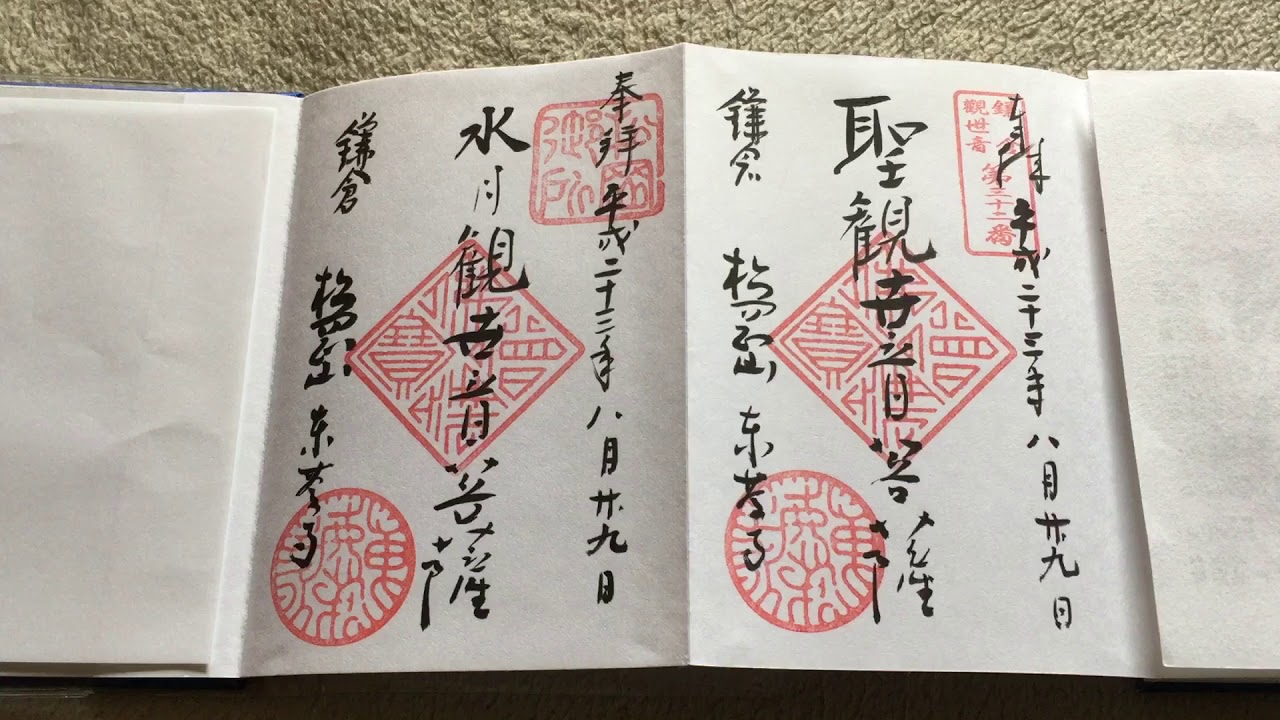 奉拝 平成二十三年八月廿九日
鎌倉
觀世音
第三十二番
聖観世音菩薩
佛法僧寶
鎌倉 松岡山 東慶寺
奉拝 平成二十三年八月廿九日
松岡御所
水月観世音菩薩
佛法僧寶
鎌倉 松岡山 東慶寺